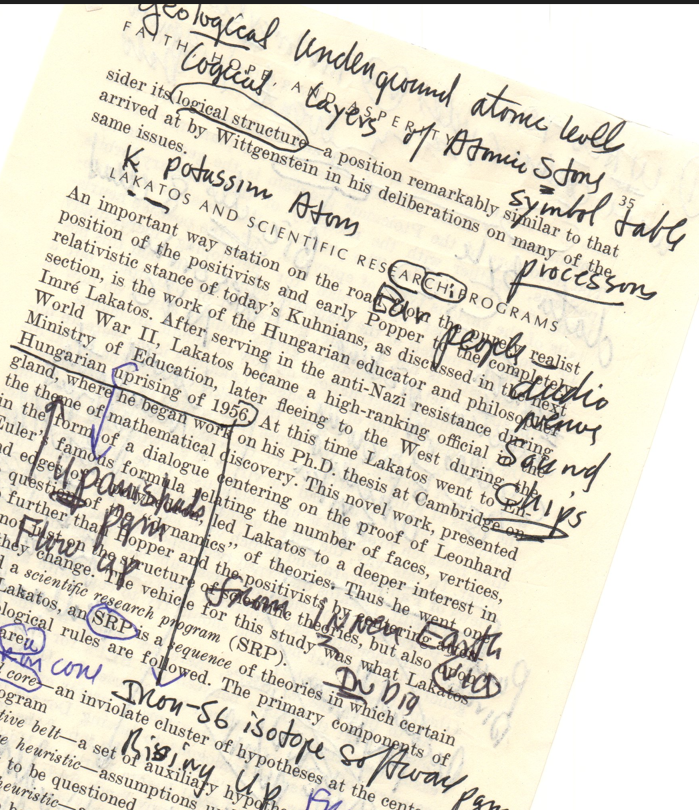 geological Underground atomic level
FAITH, HOPE, AND ASPERITY
logical layers of Atomic Stons
35
sider its logical structure—a position remarkably similar to that
arrived at by Wittgenstein in his deliberations on many of the
same issues.
symbol table
processors
K potassium Atoms
LAKATOS AND SCIENTIFIC RESEARCH PROGRAMS
An important way station on the road from the purely realist
position of the positivists and early Popper to the completely
relativistic stance of today's Kuhnians, as discussed in the next
section, is the work of the Hungarian educator and philosopher
Imré Lakatos. After serving in the anti-Nazi resistance during
World War II, Lakatos became a high-ranking official in the
Ministry of Education, later fleeing to the West during the
Hungarian uprising of 1956. At this time Lakatos went to
gland, where he began work on his Ph.D. thesis at Cambridge on
the theme of mathematical discovery. This novel work, presented
in the form of a dialogue centering on the proof of Leonhard
Euler's famous formula relating the number of faces, vertices,
nd edges of led Lakatos to a deeper interest in
question of dynamics" of theories. Thus he went on
further than Popper and the positivists by
not just on the structure of scientific theories, but also
they change. The vehicle for this study was what Lakatos
d a scientific research program (SRP).
Lakatos, an SRP is a sequence of theories in which certain
ological rules are followed. The primary components of
are
core—an inviolate cluster of hypotheses at the cente
ogram
tive belt—a set of auxiliary hypothe
e heuristic—assumptions
to be questioned
heuristic—a
Ear people
audio
menus
Sound
Chips
Upanishads
pain
Flow up
from Inner Earth
via
In Dig
iron core
Iron-56 isotope Software
Rising up